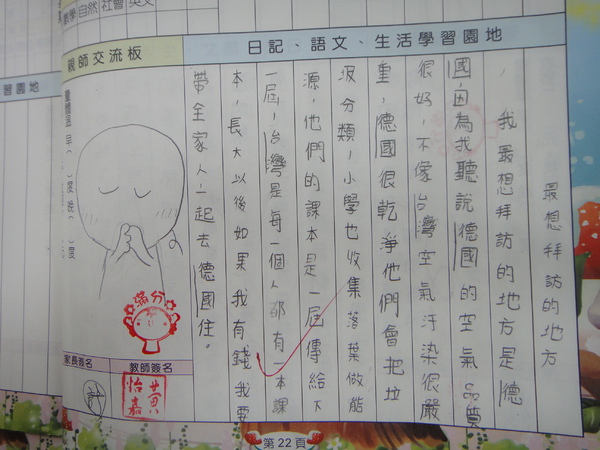 數學 自然 社會 英文
日記、語文、生活學習園地
親師交流板
習園地
最想拜訪的地方
,我最想拜訪的地方是德
國,因為我聽說德國的空氣品質
很好,不像台灣空氣汙染很嚴
重,德國很乾淨他們會把垃
圾分類,小學也收集落葉做能
源,他們的課本是一屆傳給下
一屆,台灣是每一個人都有一本課
本,長大以後如果我有錢我要
帶全家人一起去德國住。
量體溫 早( )度 晚( )度
滿分
家長簽名
教師簽名
黃怡嘉
第22頁